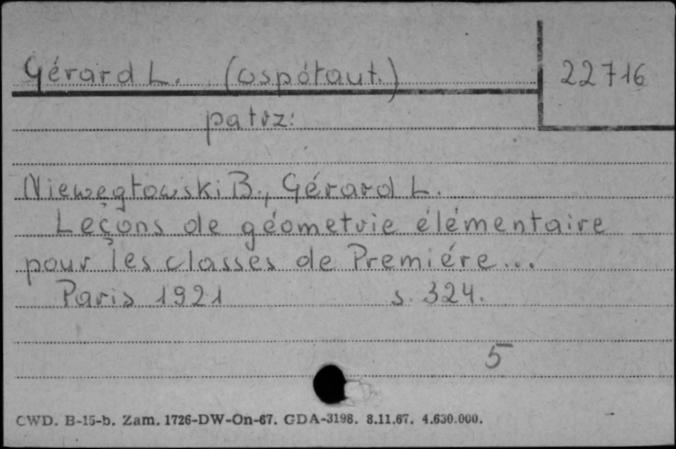 Gérard L. (współaut.) 22716
patrz:
Niewęgłowski B., Gérard L.
Leçons de géometrie élémentaire
pour les classes de Premiére...
Paris 1921 s. 324.
5
CWD. B-15-b. Zam. 1726-DW-On-67. GDA-3198. 8.11.67. 4.630.000.